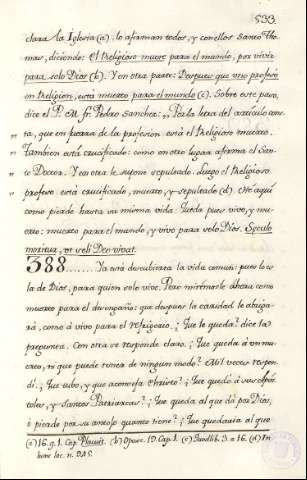 533.
clara la Iglesia (a). lo afirman todos, y con ellos Santo Tho-
mas, diciendo: el Religioso muere para el mundo, por vivir
para solo Dios (b). Y en otra parte: Despues que uno profesó
en Religion, está muerto para el mundo (c). Sobre este paso,
dice el P. M. fr. Pedro Sanchez: „ Por la letra del articulo cons-
„ ta, que en fuerza de la profesion está el Religioso muerto.
„ Tambien está crucificado: como en otro lugar afirma el San-
„ to Doctor. Y en otra le supone sepultado. Luego el Religioso
profeso está crucificado, muerto, y sepultado (d). He aquí
como pierde hasta su misma vida. Queda pues vivo, y mu-
erto: muerto para el mundo, y vivo para solo Dios. Seculo
moritur, ut soli Deo vivat.
388....... Ya está descubierta la vida comun: pues lo es
la de Dios, para quien solo vive. Pero mirémosle ahora como
muerto para el desengaño: que despues la caridad le abriga-
rá, como á vivo para el refrigerio. ¿Que le queda? dice la
pregunta. Con otra se responde claro. ¿Que queda á un mu-
erto, ni que puede tener de ningun modo? Mil veces respon-
dí. ¿Que tubo, y que aconseja Christo? ¿Que quedó á sus Após-
toles, y Santos Patriarcas? ¿Que queda al que dá por Dios,
ó pierde por su antojo quanto tiene? ¿Que quedaria al que
(a) 16. q. 1. Cap. Placuit. (b) Opusc. 19. Cap. 1. (c) Sand lib. 3. a 16. (d) In
hunc loc. n. 945.